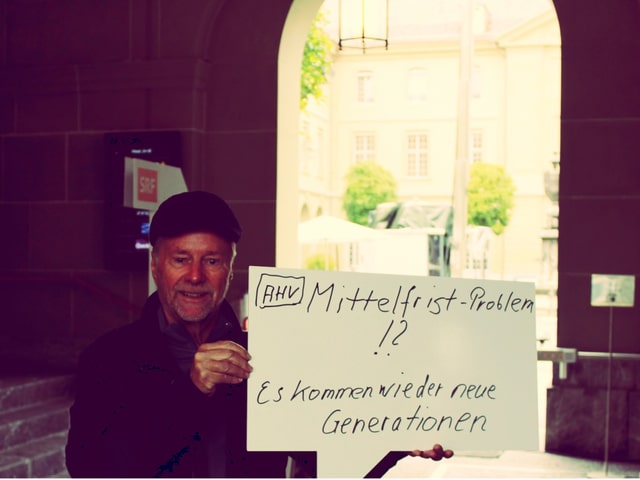 SRF
AHV Mittelfrist-Problem
!?
Es kommen wieder neue
Generationen